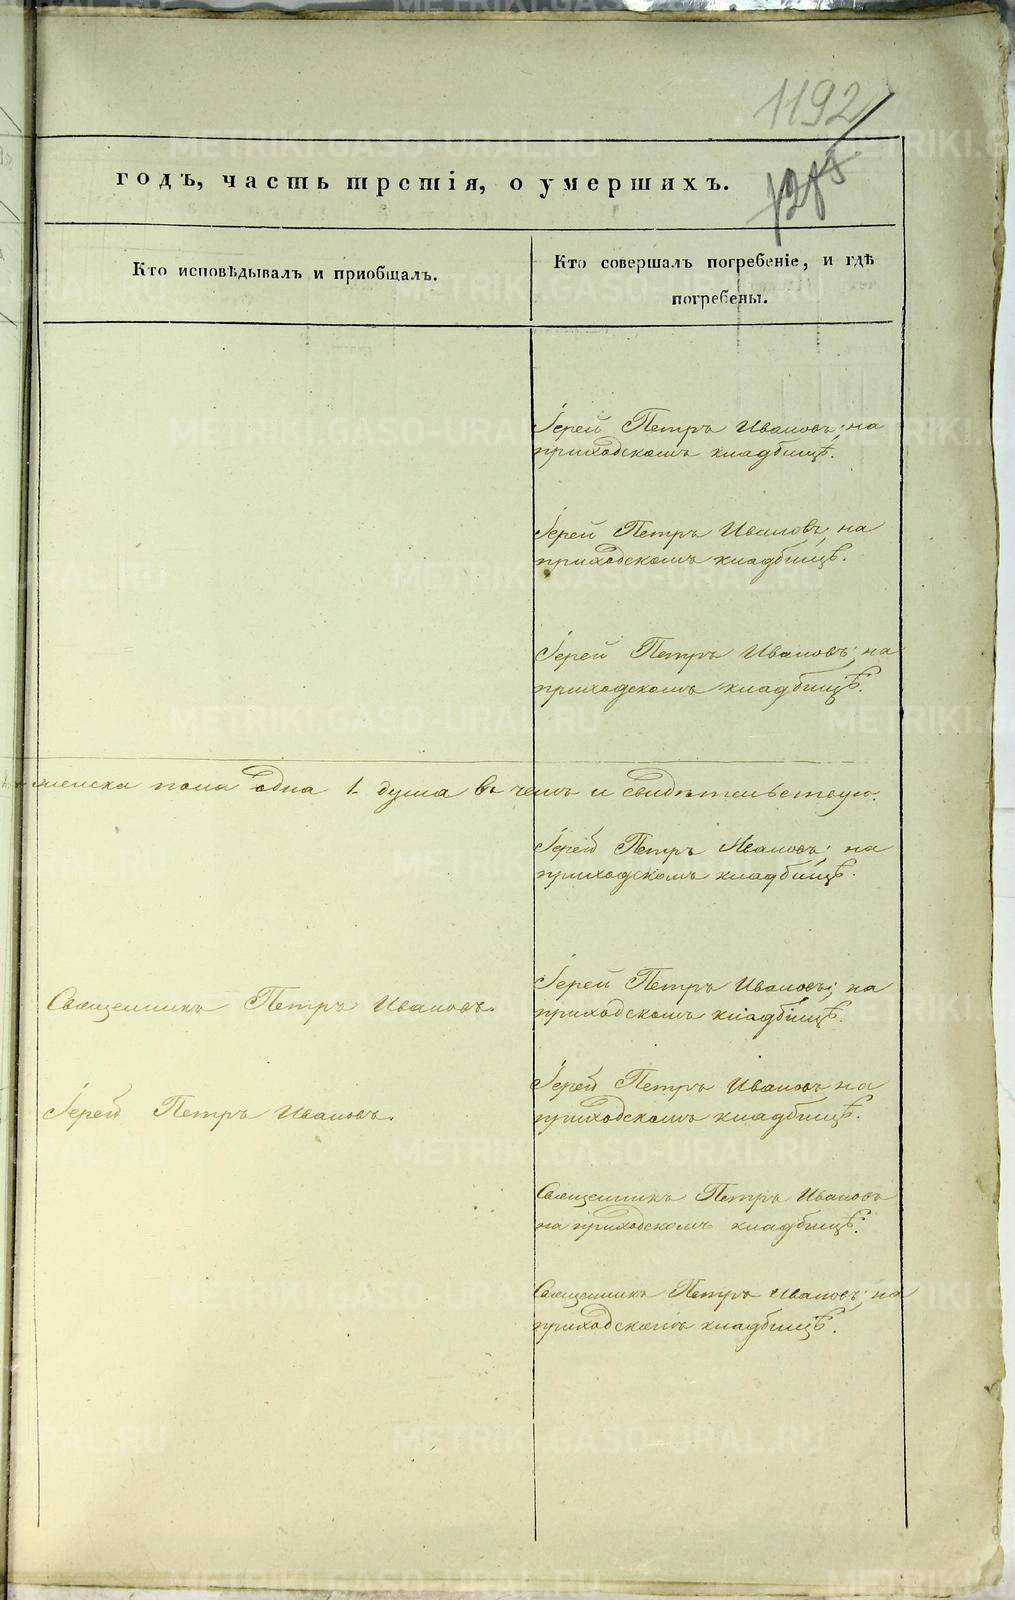 1192
1285
годъ, часть третія, о умершихъ.
Кто исповѣдывалъ и пріобщалъ.
Кто совершалъ погребеніе, и гдѣ
погребены.
Іерей Петръ Ивановъ; на
приходскомъ кладбищѣ.
Іерей Петръ Ивановъ, на
приходскомъ кладбищѣ.
Іерей Петръ Ивановъ; на
приходскомъ кладбищѣ.
женска пола одна 1. душа въ чемъ и свидѣтельствую.
Іерей Петръ Ивановъ; на
приходскомъ кладбищѣ.
Священникъ Петръ Ивановъ.
Іерей Петръ Ивановъ; на
приходскомъ кладбищѣ.
Іерей Петръ Ивановъ.
Іерей Петръ Ивановъ на
приходскомъ кладбищѣ.
Священникъ Петръ Ивановъ
на приходскомъ кладбищѣ.
Священникъ Петръ Ивановъ; на
приходскомъ кладбищѣ.
METRIKI.GASO-URAL.RU